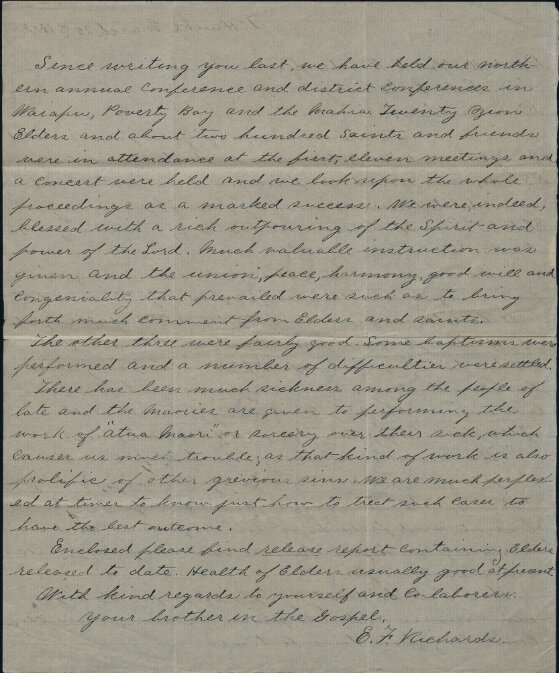 Since writing you last, we have held our north-
ern annual conference and district conferences in
Waiapu, Poverty Bay and the Mahia. Twenty Zion
Elders and about two hundred Saints and friends
were in attendance at the first; eleven meetings and
a concert were held and we look upon the whole
proceedings as a marked success. We were, indeed,
blessed with a rich outpouring of the Spirit and
power of the Lord. Much valuable instruction was
given and the union, peace, harmony, good will and
congeniality that prevailed were such as to bring
forth much comment from Elders and saints.
The other three were fairly good. Some baptisms were
performed and a number of difficulties were settled.
There has been much sickness among the people of
late and the Maories are given to performing the
work of "atua Maori" or sorcery over their sick, which
causes us much trouble, as that kind of work is also
prolific of other grevious sins. We are much perplex-
ed at times to know just how to treat such cases to
have the best outcome.
Enclosed please find release report containing Elders
released to date. Health of Elders usually good at present.
With kind regards to yourself and Co-laborers.
Your brother in the Gospel,
E. F. Richards.